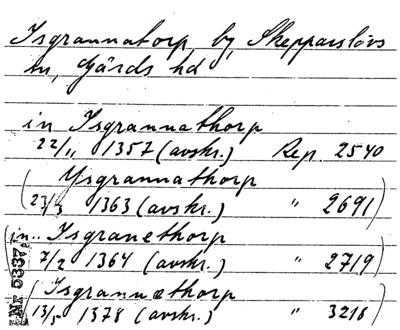 Isgrannatorp, by, Skepparslövs
sn, Gärds hd
in Isgrannathorp
22/11 1357 (avskr.) Rep. 2540
(Ysgrannathorp
23/3 1363 (avskr.) " 2691)
(in.. Isgranethorp
7/2 1364 (avskr.) " 2719)
(Isgrannæthorp
13/5 1378 (avskr.) " 3218)